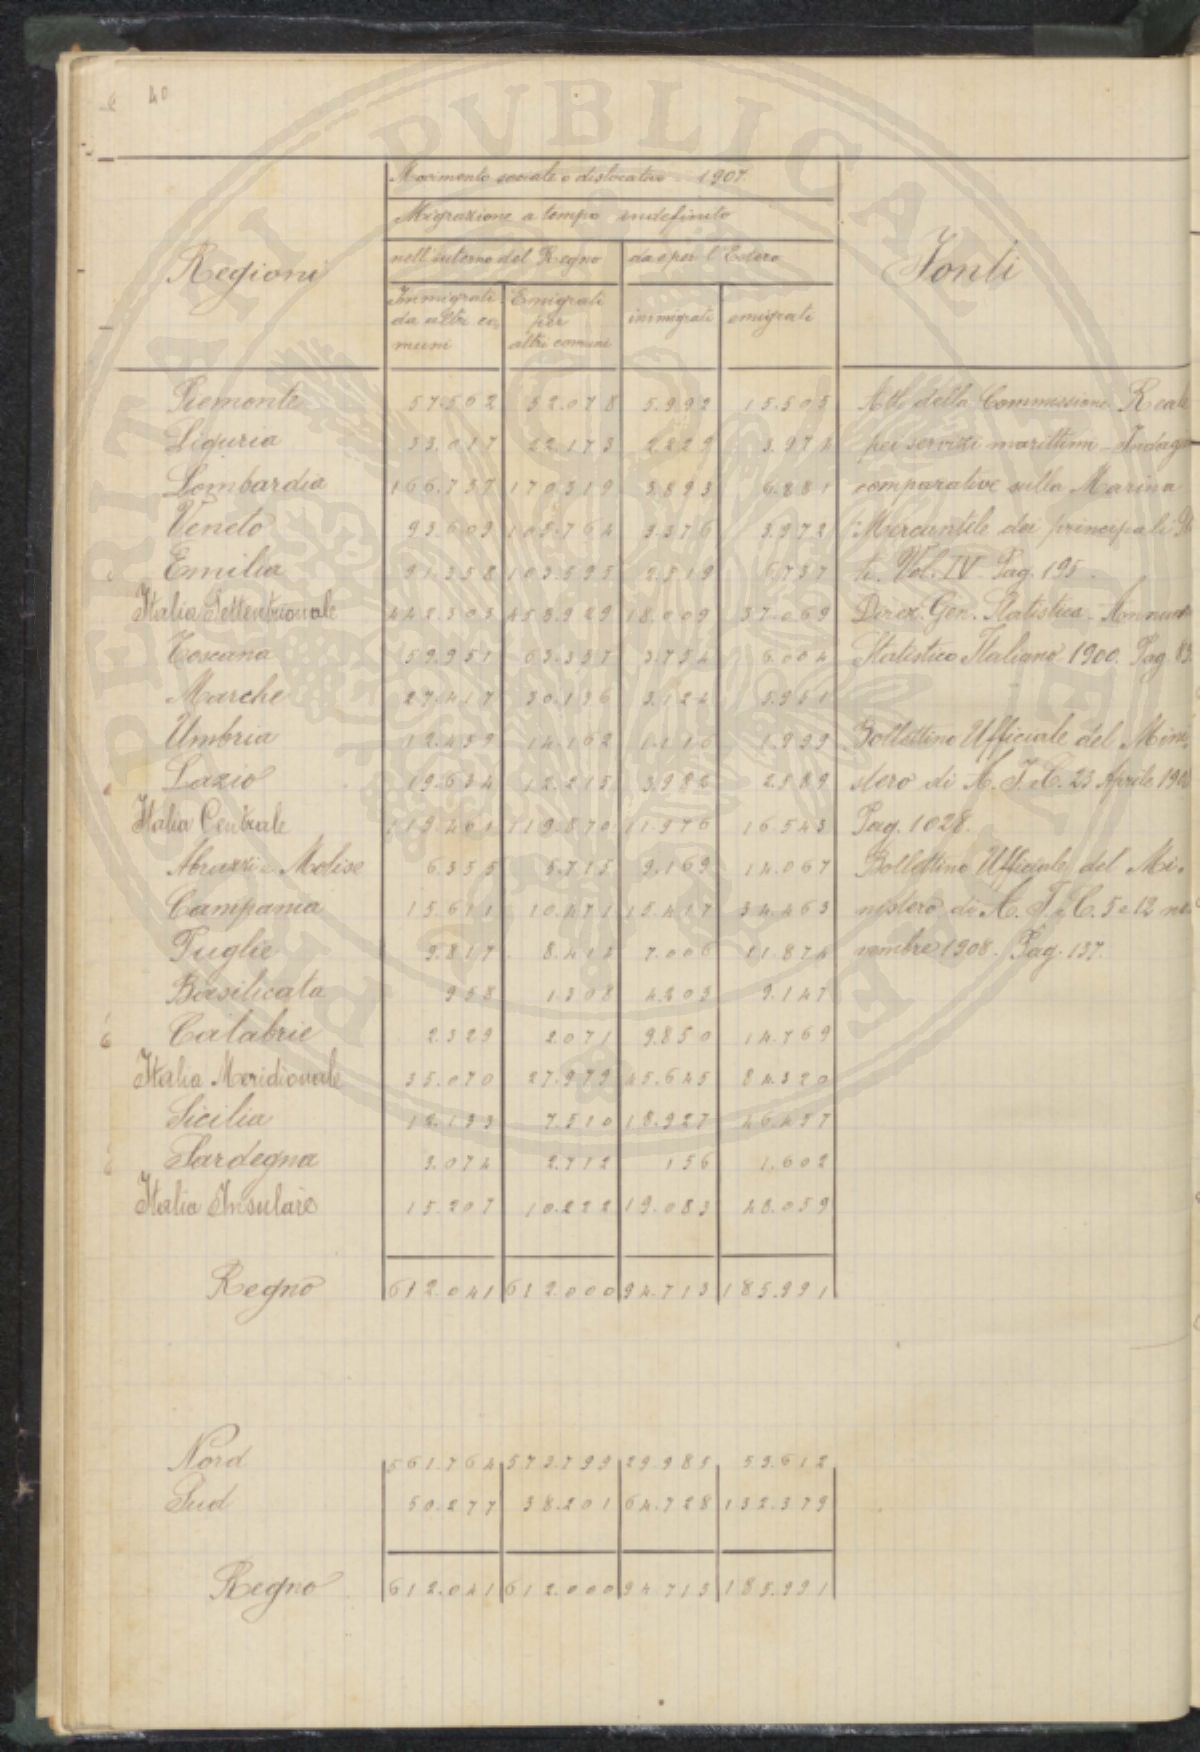 40
Movimento sociale o dislocativo - 1907.
Migrazione a tempo indefinito
Regioni nell'interno del Regno da e per l'Estero Fonti
Immigrati Emigrati
da altri co- per immigrati emigrati
muni altri comuni
Piemonte 57.562 52.078 5.992 15.505 Atti della Commissione Reale
Liguria 33.017 22.173 2.229 3.974 pei servizi marittimi - Indag
Lombardia 166.757 170.319 3.893 6.881 comparative sulla Marina
Veneto 93.609 105.764 3.376 3.972 Mercantile dei principali
Emilia 91.358 103.595 2.519 6.737 ti. Vol. IV. Pag. 195.
Italia Settentrionale 442.303 453.929 18.009 37.069 Direz. Gen. Statistica - Annua
Toscana 59.951 63.357 3.754 6.004 Statistico Italiano 1900. Pag. 83
Marche 27.417 30.136 3.124 5.951
Umbria 12.459 14.162 1.116 1.999 Bollettino Ufficiale del Mini
Lazio 19.634 12.215 3.982 2.589 stero di A. I. e C. 23 Aprile 190
Italia Centrale 119.461 119.870 11.976 16.543 Pag. 1028.
Abruzzi e Molise 6.355 5.715 9.169 14.067 Bollettino Ufficiale del Mi-
Campania 15.611 10.471 15.417 34.463 nistero di A. I. e C. 5 e 12 no
Puglie 9.817 8.414 7.006 11.874 vembre 1908. Pag. 137.
Basilicata 958 1.308 4.203 9.147
Calabrie 2.329 2.071 9.850 14.769
Italia Meridionale 35.070 27.979 45.645 84.320
Sicilia 12.133 7.510 18.927 46.457
Sardegna 3.074 2.712 156 1.602
Italia Insulare 15.207 10.222 19.083 48.059
Regno 612.041 612.000 94.713 185.991
Nord 561.764 573.799 29.985 53.612
Sud 50.277 38.201 64.728 132.379
Regno 612.041 612.000 94.713 185.991